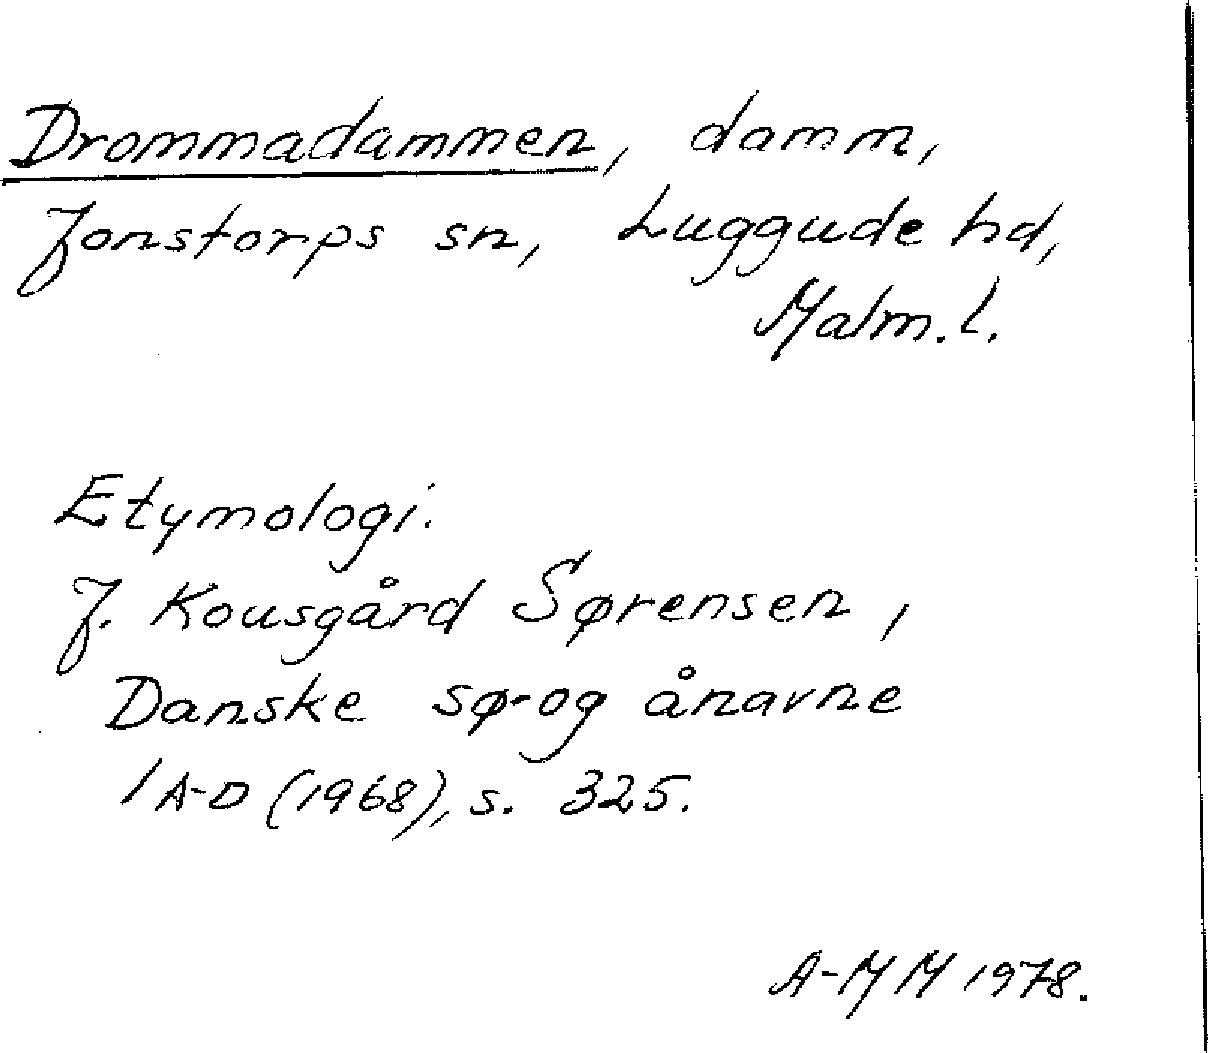 Drommadammen, damm,
Jonstorps sn, Luggude hd,
Malm. l.
Etymologi.
J. Kousgård Sørensen,
Danske sø- og ånavne
1 A-D (1968), s. 325.
A-MM 1978.